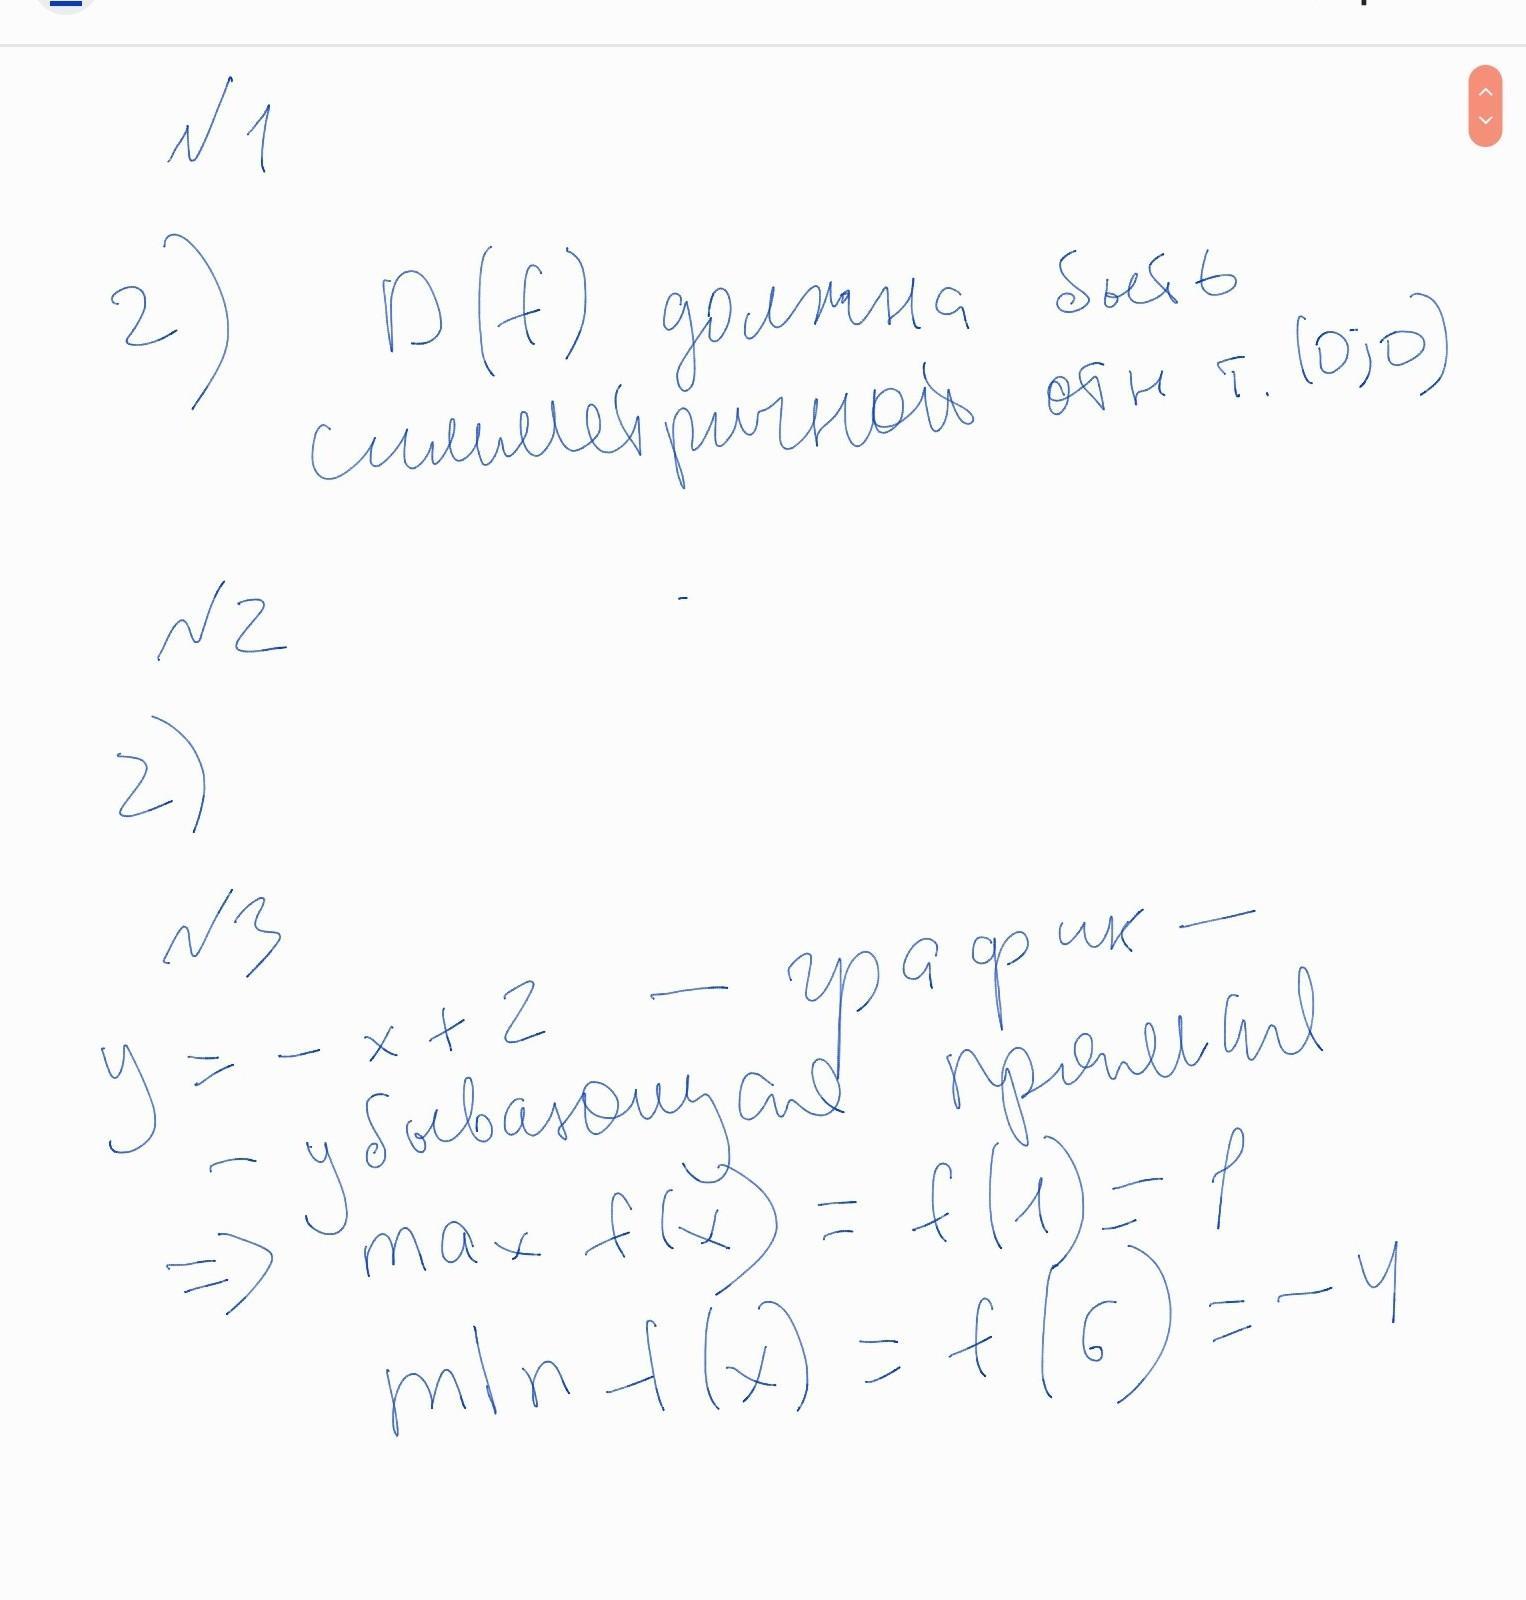 N1
2) D(f) должна быть
симметричной отн т. (0;0)
N2
2)
N3
y = - x + 2 — график —
- убывающая прямая
=> max f(x) = f(1) = 1
min f(x) = f(6) = - 4